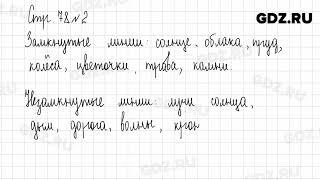 GDZ.RU
Стр. 78 № 2
Замкнутые линии: солнце, облака, пруд,
колёса, цветочки, трава, камни.
Незамкнутые линии: лучи солнца,
дым, дорога, волны,
GDZ.RU